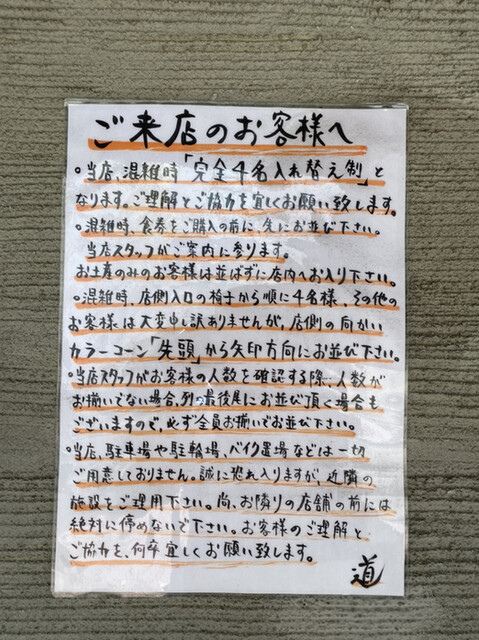 ご来店のお客様へ
。当店、混雑時「完全4名入れ替え制」と
なります。ご理解とご協力を宜しくお願い致します。
。混雑時、食券をご購入の前に、先にお並び下さい。
当店スタッフがご案内に参ります。
お土産のみのお客様は並ばずに店内へお入り下さい。
。混雑時、店側入口の椅子から順に4名様、その他の
お客様は大変申し訳ありませんが、店側の向かい
カラーコーン「先頭」から矢印方向にお並び下さい。
。当店スタッフがお客様の人数を確認する際、人数が
お揃いでない場合、列の最後尾にお並び頂く場合も
ございますので、必ず全員お揃いでお並び下さい。
。当店、駐車場や駐輪場、バイク置場などは一切
ご用意しおりません。誠に恐れ入りますが、近隣の
施設をご理用下さい。尚、お隣りの店舗の前には
絶対に停めないで下さい。お客様のご理解と
ご協力を、何卒宜しくお願い致します。
道